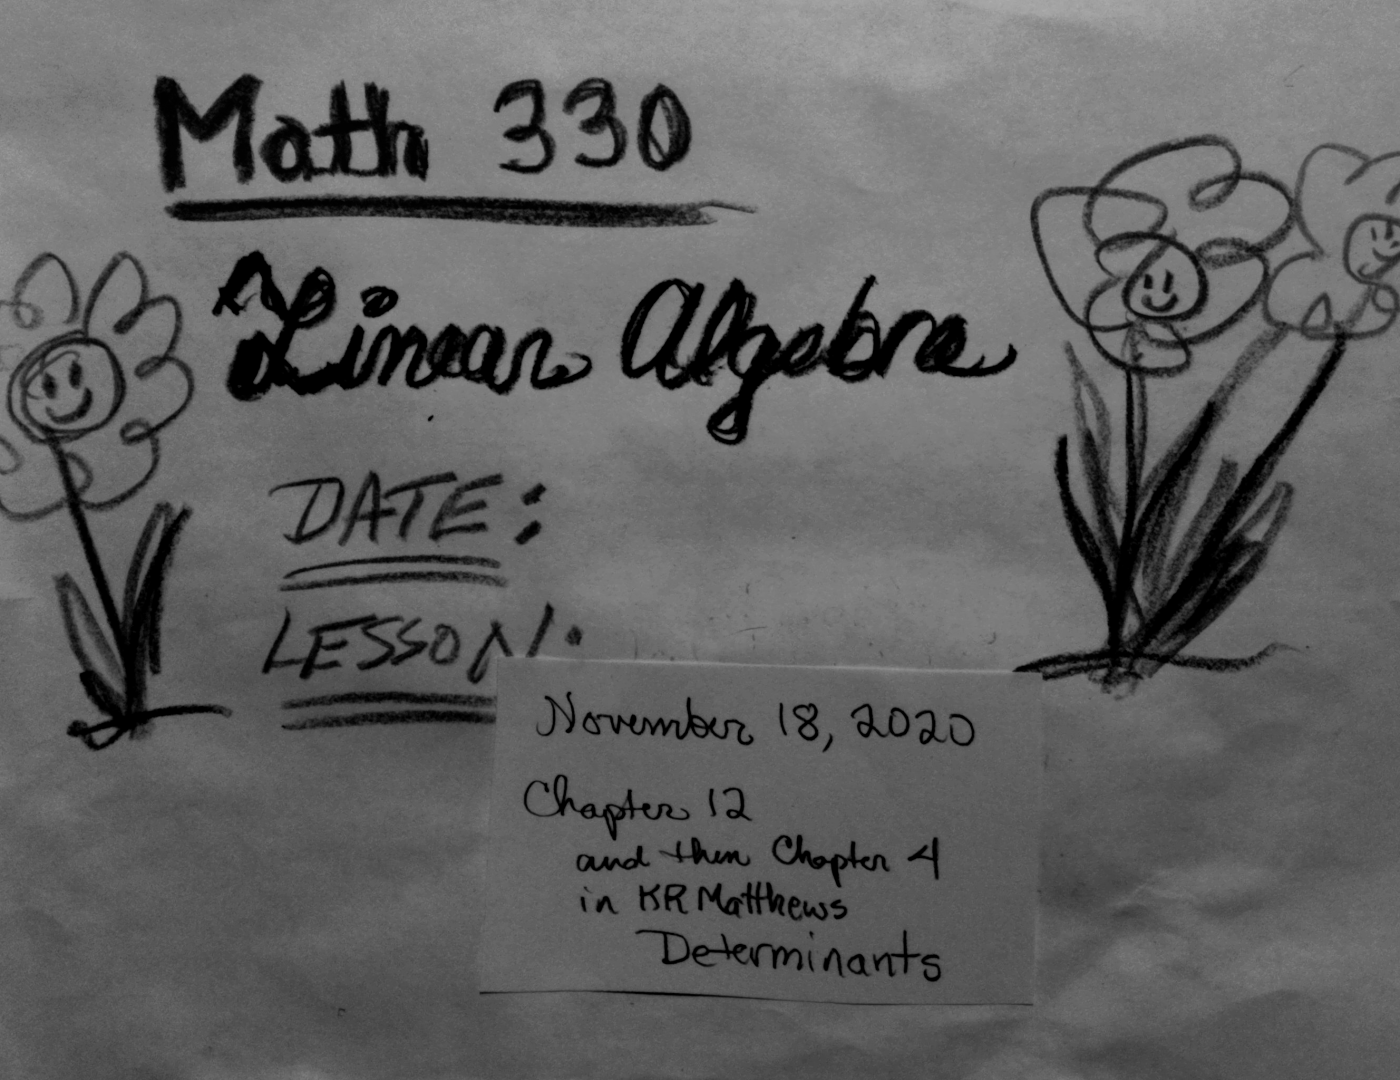 Math 330
Linear Algebra
DATE:
LESSON:
November 18, 2020
Chapter 12
and then Chapter 4
in KR Matthews
Determinants